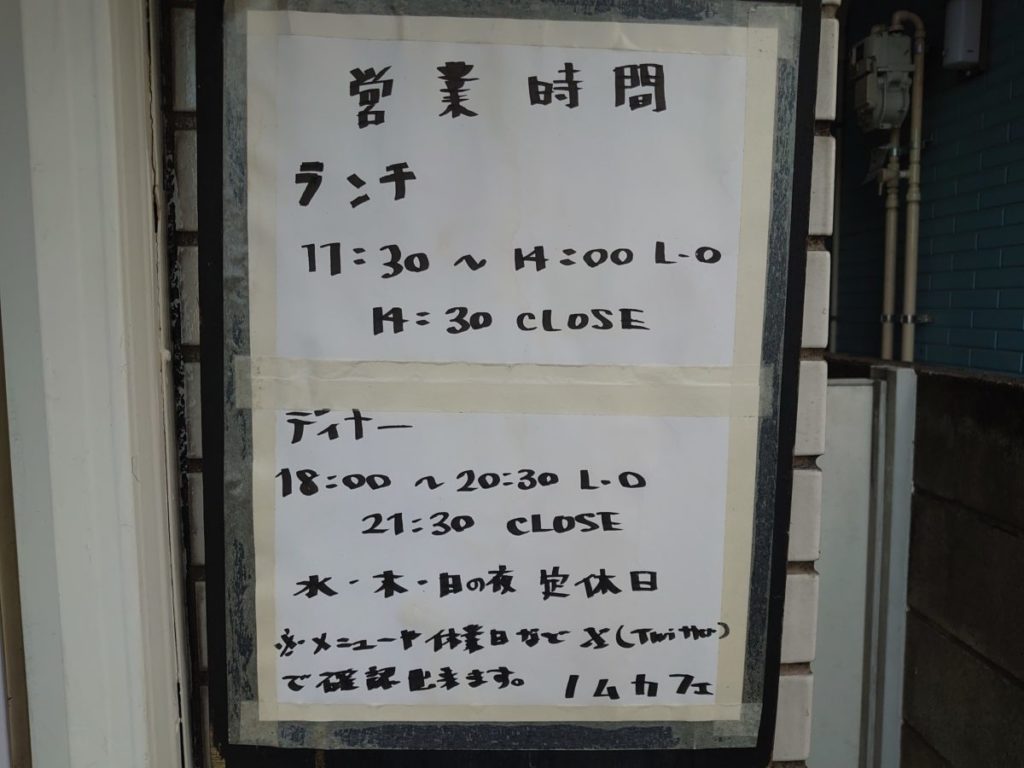 営業時間
ランチ
11:30 ~ 14:00 L・O
14:30 CLOSE
ディナー
18:00 ~ 20:30 L・O
21:30 CLOSE
水・木・日の夜 定休日
※メニューや休業日など X(Twitter)
で確認出来ます。 ノムカフェ